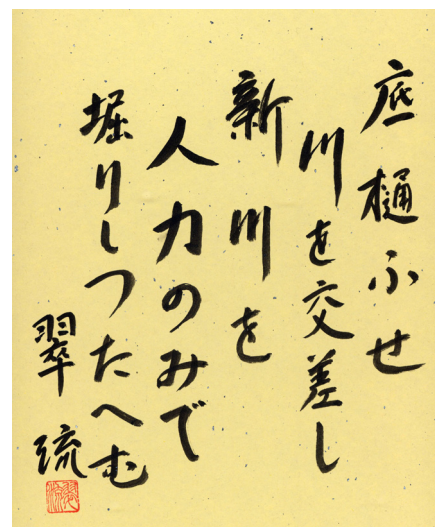 底樋ふせ
川を交差し
新川を
人力のみで
堀りしつたへむ
翠流